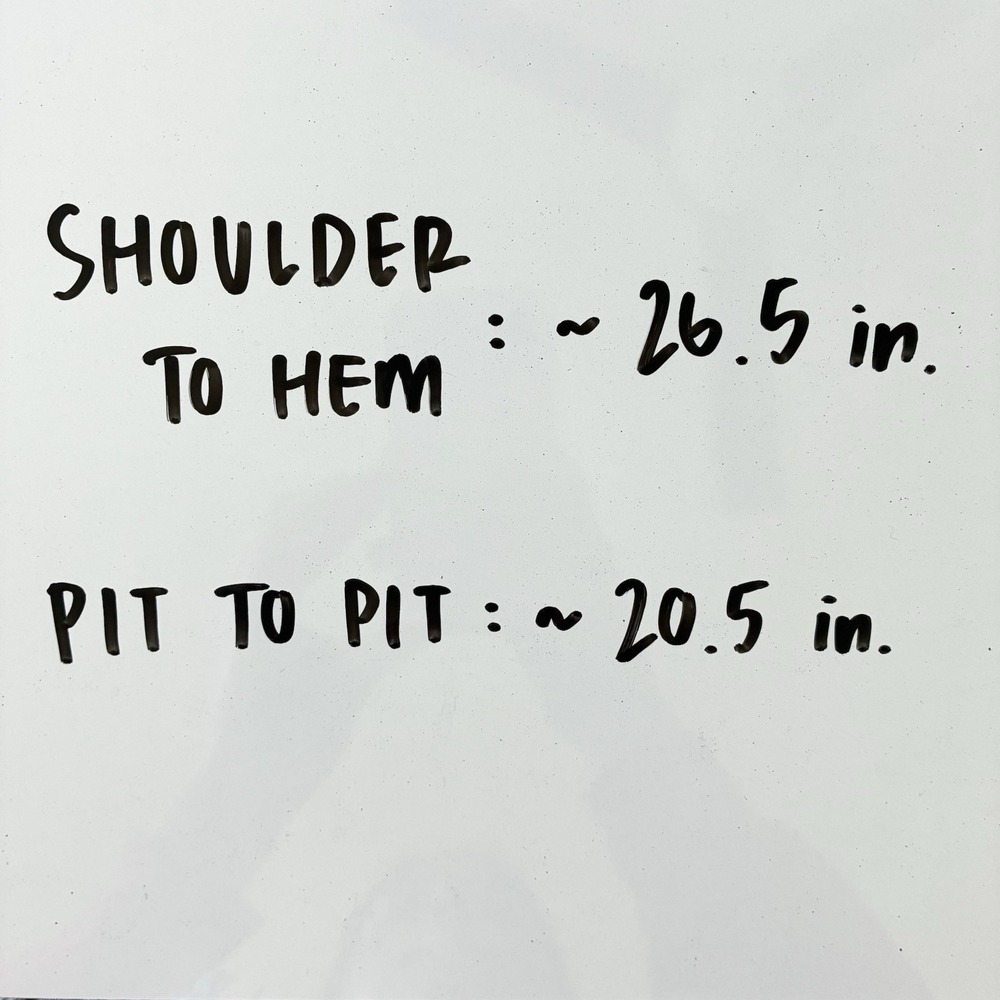 SHOULDER
TO HEM : ~ 26.5 in.
PIT TO PIT : ~ 20.5 in.